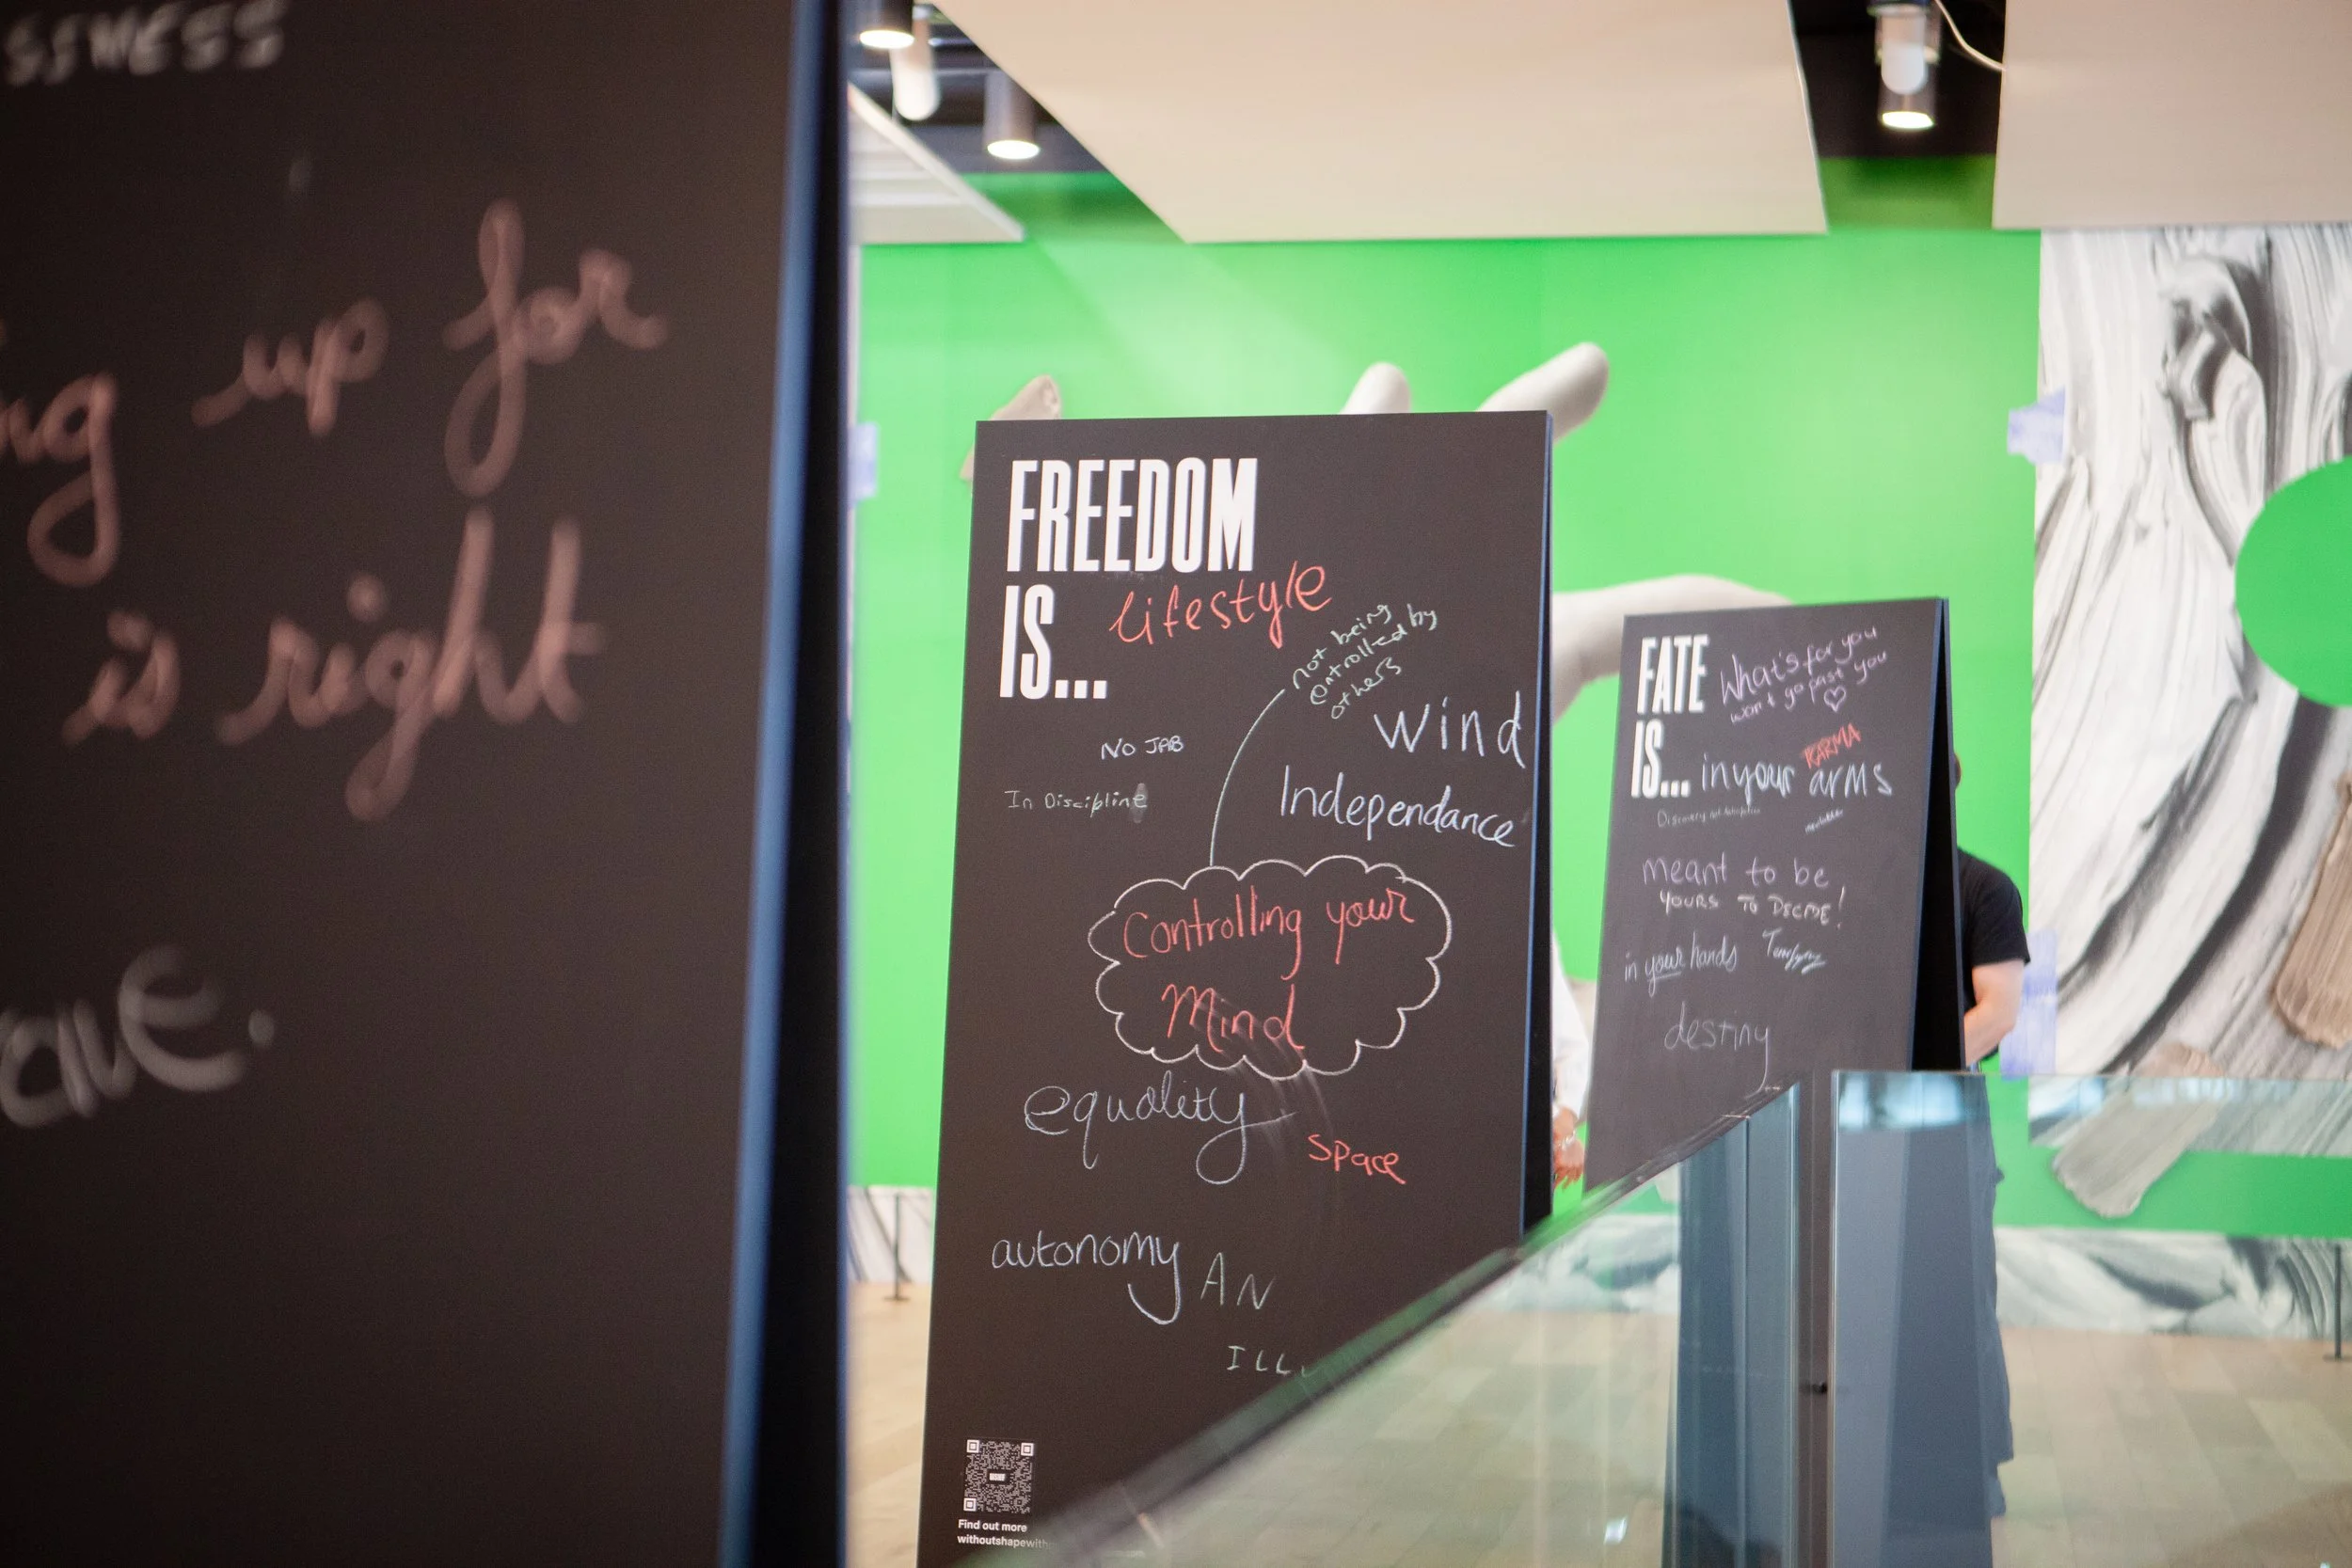 up for
is right
FREEDOM
IS...
lifestyle
not being
controlled by
others
Wind
NO JAB
In Discipline
Independance
Controlling your
Mind
equality
space
autonomy
AN
Find out more
FATE
IS...
What's for you
won't go past you
KARMA
in your arms
meant to be
YOURS TO DECIDE!
in your hands
destiny